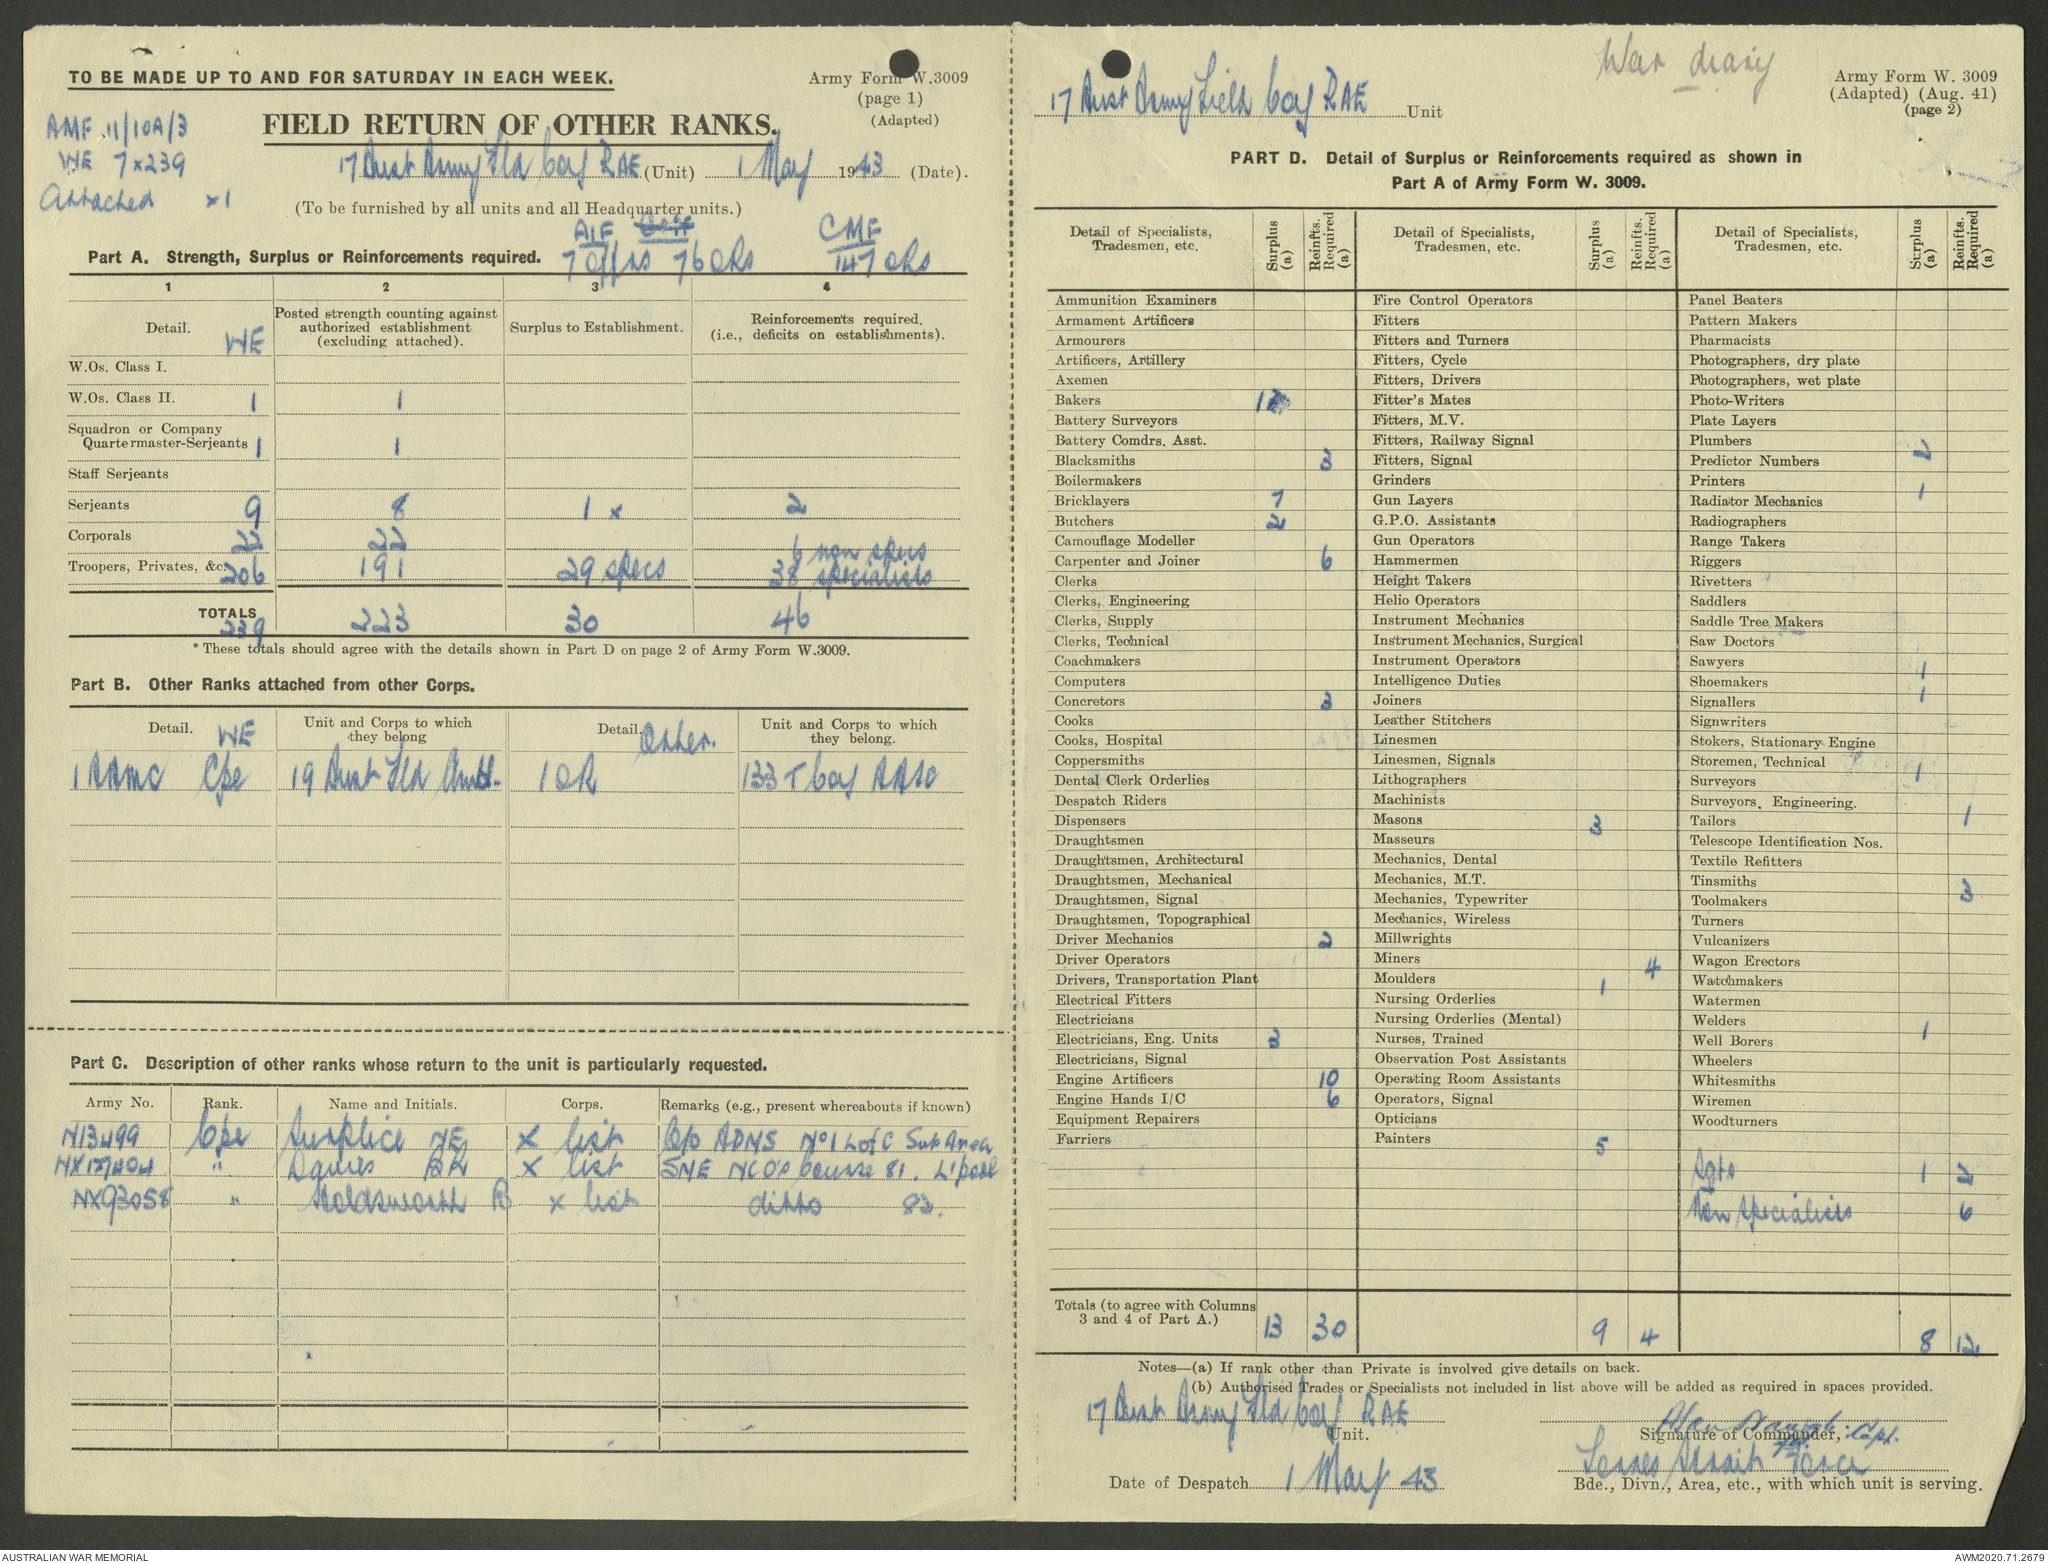 TO BE MADE UP TO AND FOR SATURDAY IN EACH WEEK.
Army Form W.3009
(page 1)
(Adapted)
AMF 11/10A/3
WE 7x239
Attached x1
FIELD RETURN OF OTHER RANKS.
17 Aust Army Fld Coy RAE (Unit) 1 May 1943 (Date).
(To be furnished by all units and all Headquarter units.)
AIF CMF
7 Offrs 76 ORs 147 ORs
Part A. Strength, Surplus or Reinforcements required.
1 2 3 4
Detail. WE
Posted strength counting against authorized establishment (excluding attached).
Surplus to Establishment.
Reinforcements required. (i.e., deficits on establishments).
W.Os. Class I.
W.Os. Class II. 1 1
Squadron or Company Quartermaster-Serjeants 1 1
Staff Serjeants
Serjeants 9 8 1 x 2
Corporals 22 22
6 non specs
Troopers, Privates, &c. 206 191 29 specs 38 specialists
TOTALS 239 223 30 46
* These totals should agree with the details shown in Part D on page 2 of Army Form W.3009.
Part B. Other Ranks attached from other Corps.
Detail. WE
Unit and Corps to which they belong
Detail. Other.
Unit and Corps to which they belong.
1 AAMC Cpl 19 Aust Fld Amb. 1 OR 133 T Coy AASC
Part C. Description of other ranks whose return to the unit is particularly requested.
Army No. Rank. Name and Initials. Corps. Remarks (e.g., present whereabouts if known)
N13499 Cpl Surplice NE X list C/o ADMS No 1 L of C Sub Area
NX127404 " Davies BR X list SME NCOs Course 81. L'pool
NX93058 " Holdsworth R X list ditto 83.
War diary
Army Form W. 3009
(Adapted) (Aug. 41)
(page 2)
17 Aust Army Field Coy RAE Unit
PART D. Detail of Surplus or Reinforcements required as shown in
Part A of Army Form W. 3009.
Detail of Specialists, Tradesmen, etc. Surplus (a) Reinfts. Required (a)
Ammunition Examiners
Armament Artificers
Armourers
Artificers, Artillery
Axemen
Bakers 1
Battery Surveyors
Battery Comdrs. Asst.
Blacksmiths 3
Boilermakers
Bricklayers 7
Butchers 2
Camouflage Modeller
Carpenter and Joiner 6
Clerks
Clerks, Engineering
Clerks, Supply
Clerks, Technical
Coachmakers
Computers
Concretors 3
Cooks
Cooks, Hospital
Coppersmiths
Dental Clerk Orderlies
Despatch Riders
Dispensers
Draughtsmen
Draughtsmen, Architectural
Draughtsmen, Mechanical
Draughtsmen, Signal
Draughtsmen, Topographical
Driver Mechanics 2
Driver Operators
Drivers, Transportation Plant
Electrical Fitters
Electricians
Electricians, Eng. Units 3
Electricians, Signal
Engine Artificers 10
Engine Hands I/C 6
Equipment Repairers
Farriers
Detail of Specialists, Tradesmen, etc. Surplus (a) Reinfts. Required (a)
Fire Control Operators
Fitters
Fitters and Turners
Fitters, Cycle
Fitters, Drivers
Fitter's Mates
Fitters, M.V.
Fitters, Railway Signal
Fitters, Signal
Grinders
Gun Layers
G.P.O. Assistants
Gun Operators
Hammermen
Height Takers
Helio Operators
Instrument Mechanics
Instrument Mechanics, Surgical
Instrument Operators
Intelligence Duties
Joiners
Leather Stitchers
Linesmen
Linesmen, Signals
Lithographers
Machinists
Masons 3
Masseurs
Mechanics, Dental
Mechanics, M.T.
Mechanics, Typewriter
Mechanics, Wireless
Millwrights
Miners 4
Moulders 1
Nursing Orderlies
Nursing Orderlies (Mental)
Nurses, Trained
Observation Post Assistants
Operating Room Assistants
Operators, Signal
Opticians
Painters 5
Detail of Specialists, Tradesmen, etc. Surplus (a) Reinfts. Required (a)
Panel Beaters
Pattern Makers
Pharmacists
Photographers, dry plate
Photographers, wet plate
Photo-Writers
Plate Layers
Plumbers 2
Predictor Numbers
Printers 1
Radiator Mechanics
Radiographers
Range Takers
Riggers
Rivetters
Saddlers
Saddle Tree Makers
Saw Doctors
Sawyers 1
Shoemakers 1
Signallers
Signwriters
Stokers, Stationary Engine
Storemen, Technical 1
Surveyors
Surveyors, Engineering.
Tailors 1
Telescope Identification Nos.
Textile Refitters
Tinsmiths 3
Toolmakers
Turners
Vulcanizers
Wagon Erectors
Watchmakers
Watermen
Welders 1
Well Borers
Wheelers
Whitesmiths
Wiremen
Woodturners
Sgts 1 2
Non specialists 6
Totals (to agree with Columns 3 and 4 of Part A.) 13 30 9 4 8 12
Notes—(a) If rank other than Private is involved give details on back.
(b) Authorised Trades or Specialists not included in list above will be added as required in spaces provided.
17 Aust Army Fld Coy RAE
Unit.
Capt.
Signature of Commander,
Date of Despatch 1 May 43
Torres Strait Force
Bde., Divn., Area, etc., with which unit is serving.
AUSTRALIAN WAR MEMORIAL
AWM2020.71.2679